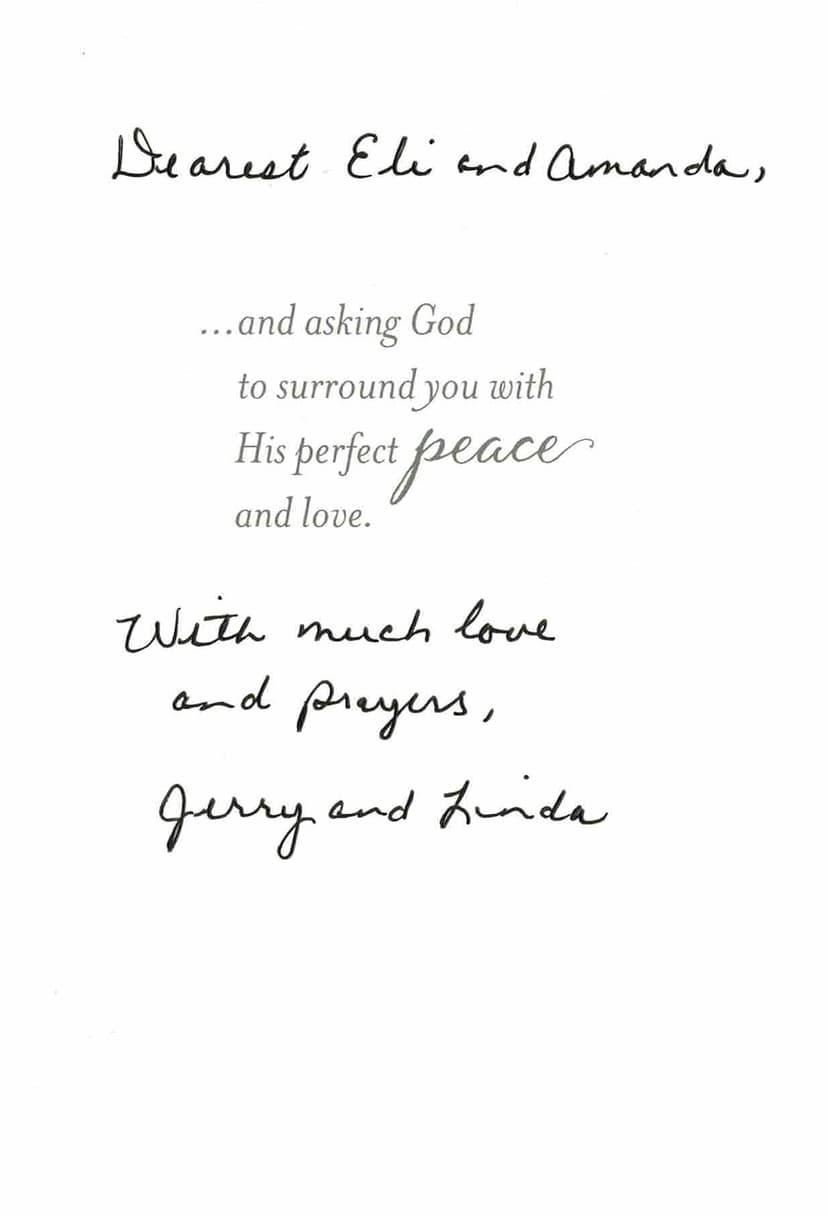 Dearest Eli and Amanda,
...and asking God
to surround you with
His perfect peace
and love.
With much love
and prayers,
Jerry and Linda